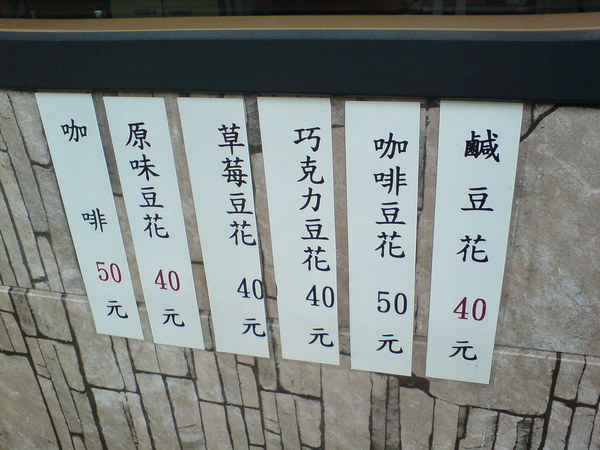 鹹豆花40元
咖啡豆花50元
巧克力豆花40元
草莓豆花40元
原味豆花40元
咖啡50元